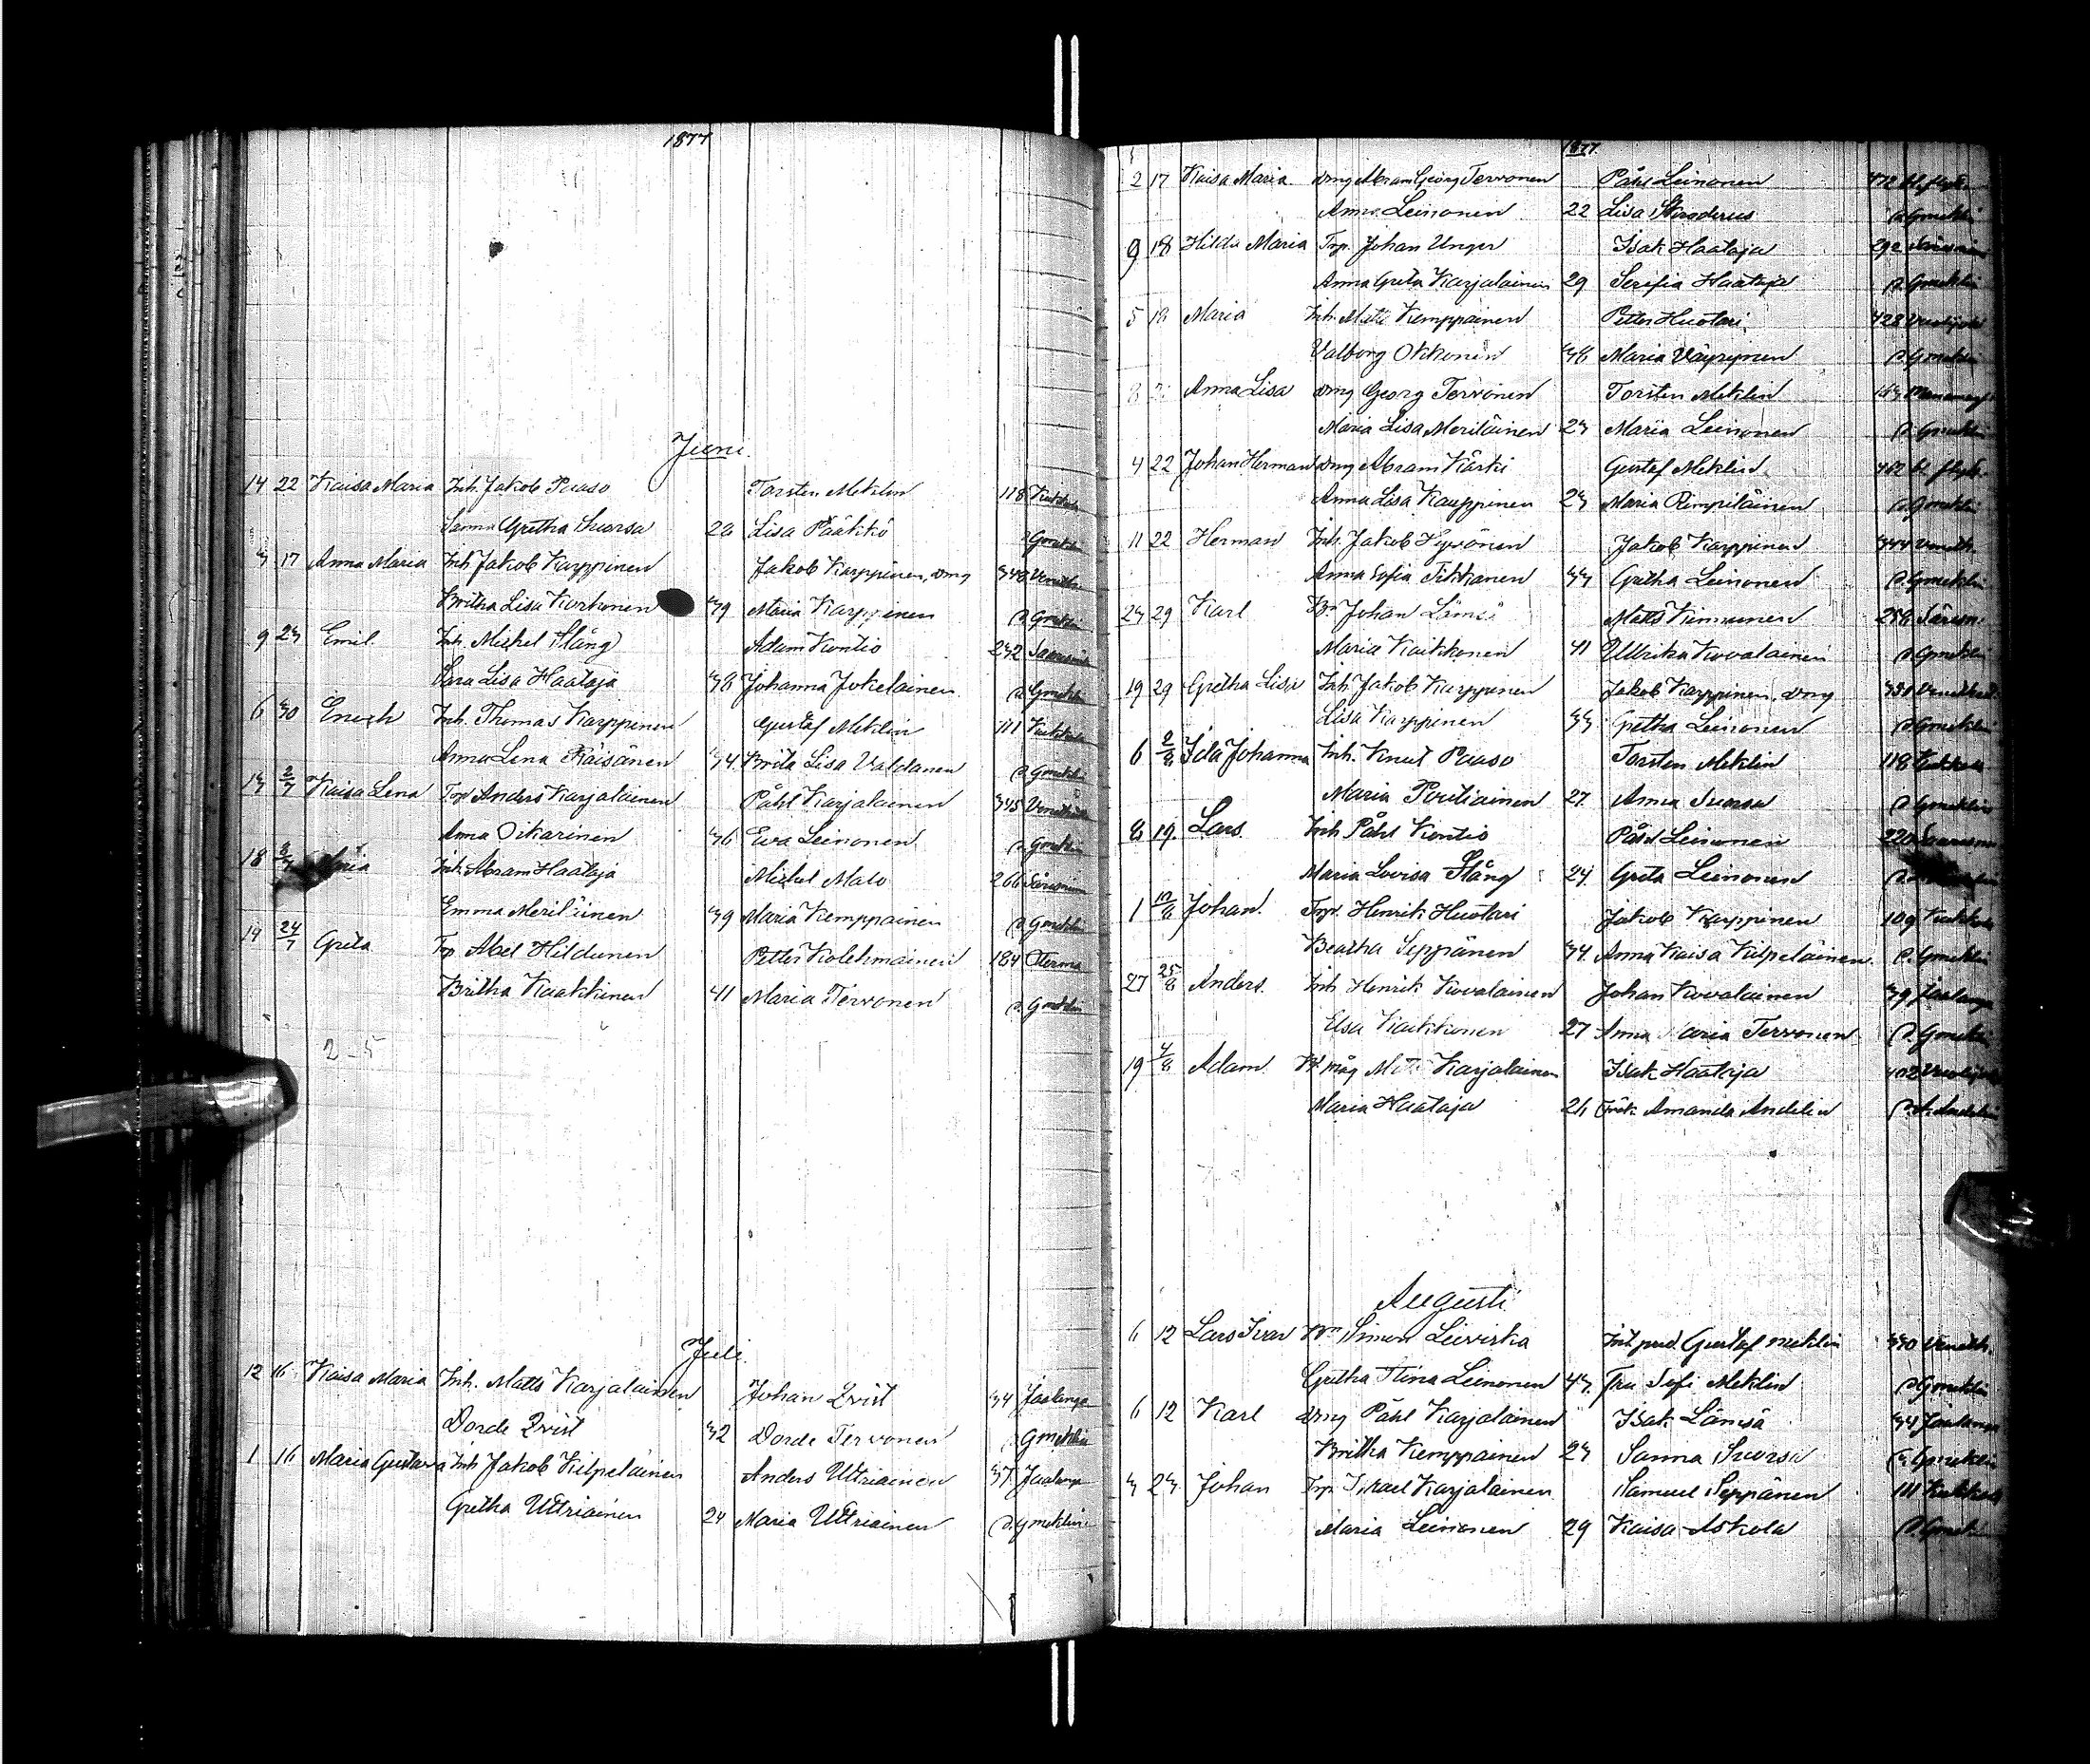 1877
Juni.
14 22 Kaisa Maria Inh. Jakob Paaso Torsten Meklin 118
Sanna Gretha Suorsa 28 Lisa Pääkkö Gmeklin
3 17 Anna Maria Inh Jakob Karppinen Jakob Karppinen, dmg 348
Britha Lisa Korhonen 39 Maria Karppinen Gmeklin
9 23 Emil. Inh. Mickel Stång Adam Kontio 232
Sara Lisa Haataja 38 Johanna Jokelainen Gmeklin
6 30 Enoch Inh. Thomas Karppinen Gustaf Meklin 111
Anna Lena Räisänen 34. Brita Lisa Valdanen Gmeklin
13 2/7 Kaisa Lena Trp Anders Karjalainen Påhl Karjalainen 345
Anna Oikarinen 36 Eva Leinonen Gmeklin
18 8/7 Inh. Abram Haataja Mickel Malo 266
Emma Meriläinen 39 Maria Kemppainen Gmeklin
14 24/7 Greta Trp Abel Hildunen Petter Kolehmainen 184
Britha Kaakkinen 41 Maria Tervonen Gmeklin
2-5
Juli.
12 16 Kaisa Maria Inh. Matts Karjalainen Johan Qvist 34 Jaalanga
Dorde Qvist 32 Dorde Tervonen Gmeklin
1 16 Maria Gustava Inh Jakob Kilpeläinen Anders Uttriainen 37 Jaalanga
Gretha Uttriainen 24 Maria Uttriainen Gmeklin
1877.
2 17 Kaisa Maria dmg Abram Georg Tervonen Påhl Leinonen 472
Anna Leinonen 22 Lisa Gmeklin
9 18 Hilda Maria Trp. Johan Unger Isak Haataja 292
Anna Greta Karjalainen 29 Serafia Haataja Gmeklin
5 18 Maria Inh. Matts Kemppainen Petter Huotari 428
Valborg Okkonen 38 Maria Väyrynen Gmeklin
8 Anna Lisa dmg Georg Tervonen Torsten Meklin
Maria Lisa Meriläinen 23 Maria Leinonen Gmeklin
4 22 Johan Herman dmg Abram Kärki Gustaf Meklin
Anna Lisa Kauppinen 23 Maria Rimpiläinen Gmeklin
11 22 Herman Inh. Jakob Hyvönen Jakob Karppinen 344
Anna Sofia Tikkanen 33 Gretha Leinonen Gmeklin
23 29 Karl Bn Johan Lämsä Matts Kinnunen
Maria Kaikkonen 41 Ullrika Kovalainen Gmeklin
19 29 Gretha Lisa Inh. Jakob Karppinen Jakob Karppinen, dmg 351
Lisa Karppinen 33 Gretha Leinonen Gmeklin
6 2/8 Ida Johanna Inh. Knut Paaso Torsten Meklin 118
Maria Poutiainen 27. Anna Suorsa Gmeklin
8 19. Lars. Inh Påhl Kontio Påhl Leinonen
Maria Lovisa Stång 24. Greta Leinonen
1 12/8 Johan. Trp. Henrik Huotari Jakob Karppinen 109
Beatha Seppänen 34. Anna Kaisa Kilpeläinen. Gmeklin
27 25/8 Anders. Inh Henrik Kovalainen Johan Kovalainen 39 Jaalanga
Elsa Kaikkonen 27 Anna Maria Tervonen Gmeklin
19 4/8 Adam. måg Matts Karjalainen Isak Haataja 402
Maria Haataja 26 Frök. Amanda Andelin A. Andelin
Augusti
6 12 Lars Ivar Bn Simon Leiviskä Gustaf Meklin 330
Gretha Stina Leinonen 43. Fru Sofi Meklin Gmeklin
6 12 Karl dmg Påhl Karjalainen Isak Lämsä 34 Jaalanga
Britha Kemppainen 23 Sanna Suorsa Gmeklin
3 23 Johan Trp. Israel Karjalainen Samuel Seppänen 111
Maria Leinonen 29 Kaisa Askola